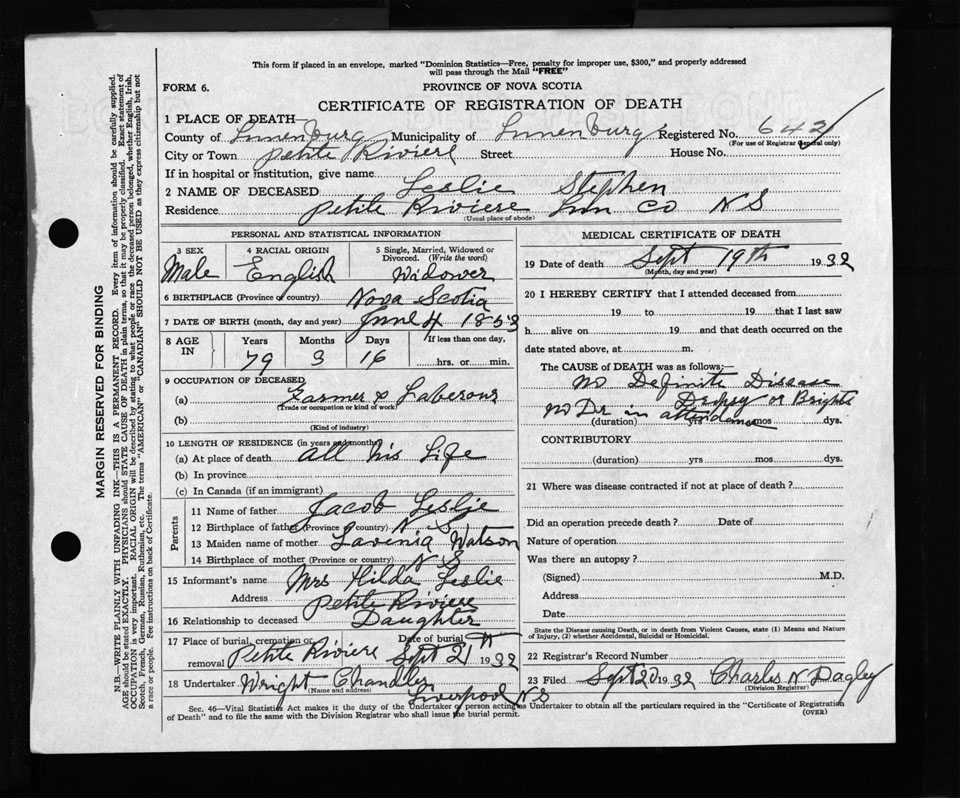 This form if placed in an envelope, marked "Dominion Statistics—Free, penalty for improper use, $300," and properly addressed
will pass through the Mail "FREE"
FORM 6.
PROVINCE OF NOVA SCOTIA
CERTIFICATE OF REGISTRATION OF DEATH
1 PLACE OF DEATH—
County of Lunenburg Municipality of Lunenburg Registered No. 642
(For use of Registrar General only)
City or Town Petite Riviere Street House No.
If in hospital or institution, give name
2 NAME OF DECEASED Leslie Stephen
Residence Petite Riviere Lun Co N S
(Usual place of abode)
PERSONAL AND STATISTICAL INFORMATION
3 SEX 4 RACIAL ORIGIN 5 Single, Married, Widowed or
Divorced. (Write the word)
Male English Widower
6 BIRTHPLACE (Province or country) Nova Scotia
7 DATE OF BIRTH (month, day and year) June 4 1853
8 AGE IN Years Months Days If less than one day,
79 3 16 hrs. or min.
9 OCCUPATION OF DECEASED
(a) Farmer & Laberour
(Trade or occupation or kind of work)
(b)
(Kind of industry)
10 LENGTH OF RESIDENCE (in years and months)
(a) At place of death all his Life
(b) In province
(c) In Canada (if an immigrant)
Parents
11 Name of father Jacob Leslie
12 Birthplace of father (Province or country) N S
13 Maiden name of mother Lavenia Watson
14 Birthplace of mother (Province or country) N S
15 Informant's name Mrs Hilda Leslie
Address Petite Riviere
16 Relationship to deceased Daughter
17 Place of burial, cremation or Date of burial
removal Petite Riviere Sept 21st 1932
18 Undertaker Wright Chandler
(Name and address) Liverpool N S
MEDICAL CERTIFICATE OF DEATH
19 Date of death Sept 19th 1932
(Month, day and year)
20 I HEREBY CERTIFY that I attended deceased from
19 to 19 that I last saw
h alive on 19 and that death occurred on the
date stated above, at m.
The CAUSE of DEATH was as follows:—
No Definite Disease
Dropsy or Brights
No Dr in attendance
(duration) yrs mos dys.
CONTRIBUTORY
(duration) yrs mos dys.
21 Where was disease contracted if not at place of death?
Did an operation precede death? Date of
Nature of operation
Was there an autopsy?
(Signed) M.D.
Address
Date
State the Disease causing Death, or in death from Violent Causes, state (1) Means and Nature
of Injury, (2) whether Accidental, Suicidal or Homicidal.
22 Registrar's Record Number
23 Filed Sept 20 1932 Charles N Dagley
(Division Registrar)
Sec. 46—Vital Statistics Act makes it the duty of the Undertaker or person acting as Undertaker to obtain all the particulars required in the "Certificate of Registration
of Death" and to file the same with the Division Registrar who shall issue the burial permit.
(OVER)
MARGIN RESERVED FOR BINDING
N.B.—WRITE PLAINLY WITH UNFADING INK—THIS IS A PERMANENT RECORD. Every item of information should be carefully supplied.
AGE should be stated EXACTLY. PHYSICIANS should STATE CAUSE OF DEATH in plain terms, so that it may be properly classified. Exact statement of
OCCUPATION is very important. RACIAL ORIGIN will be described by stating to what people or race the deceased person belonged, whether English, Irish,
Scotch, French, German, Russian, Ruthenian, etc. The terms "AMERICAN" or "CANADIAN" SHOULD NOT BE USED as they express citizenship but not
a race or people. See instructions on back of Certificate.